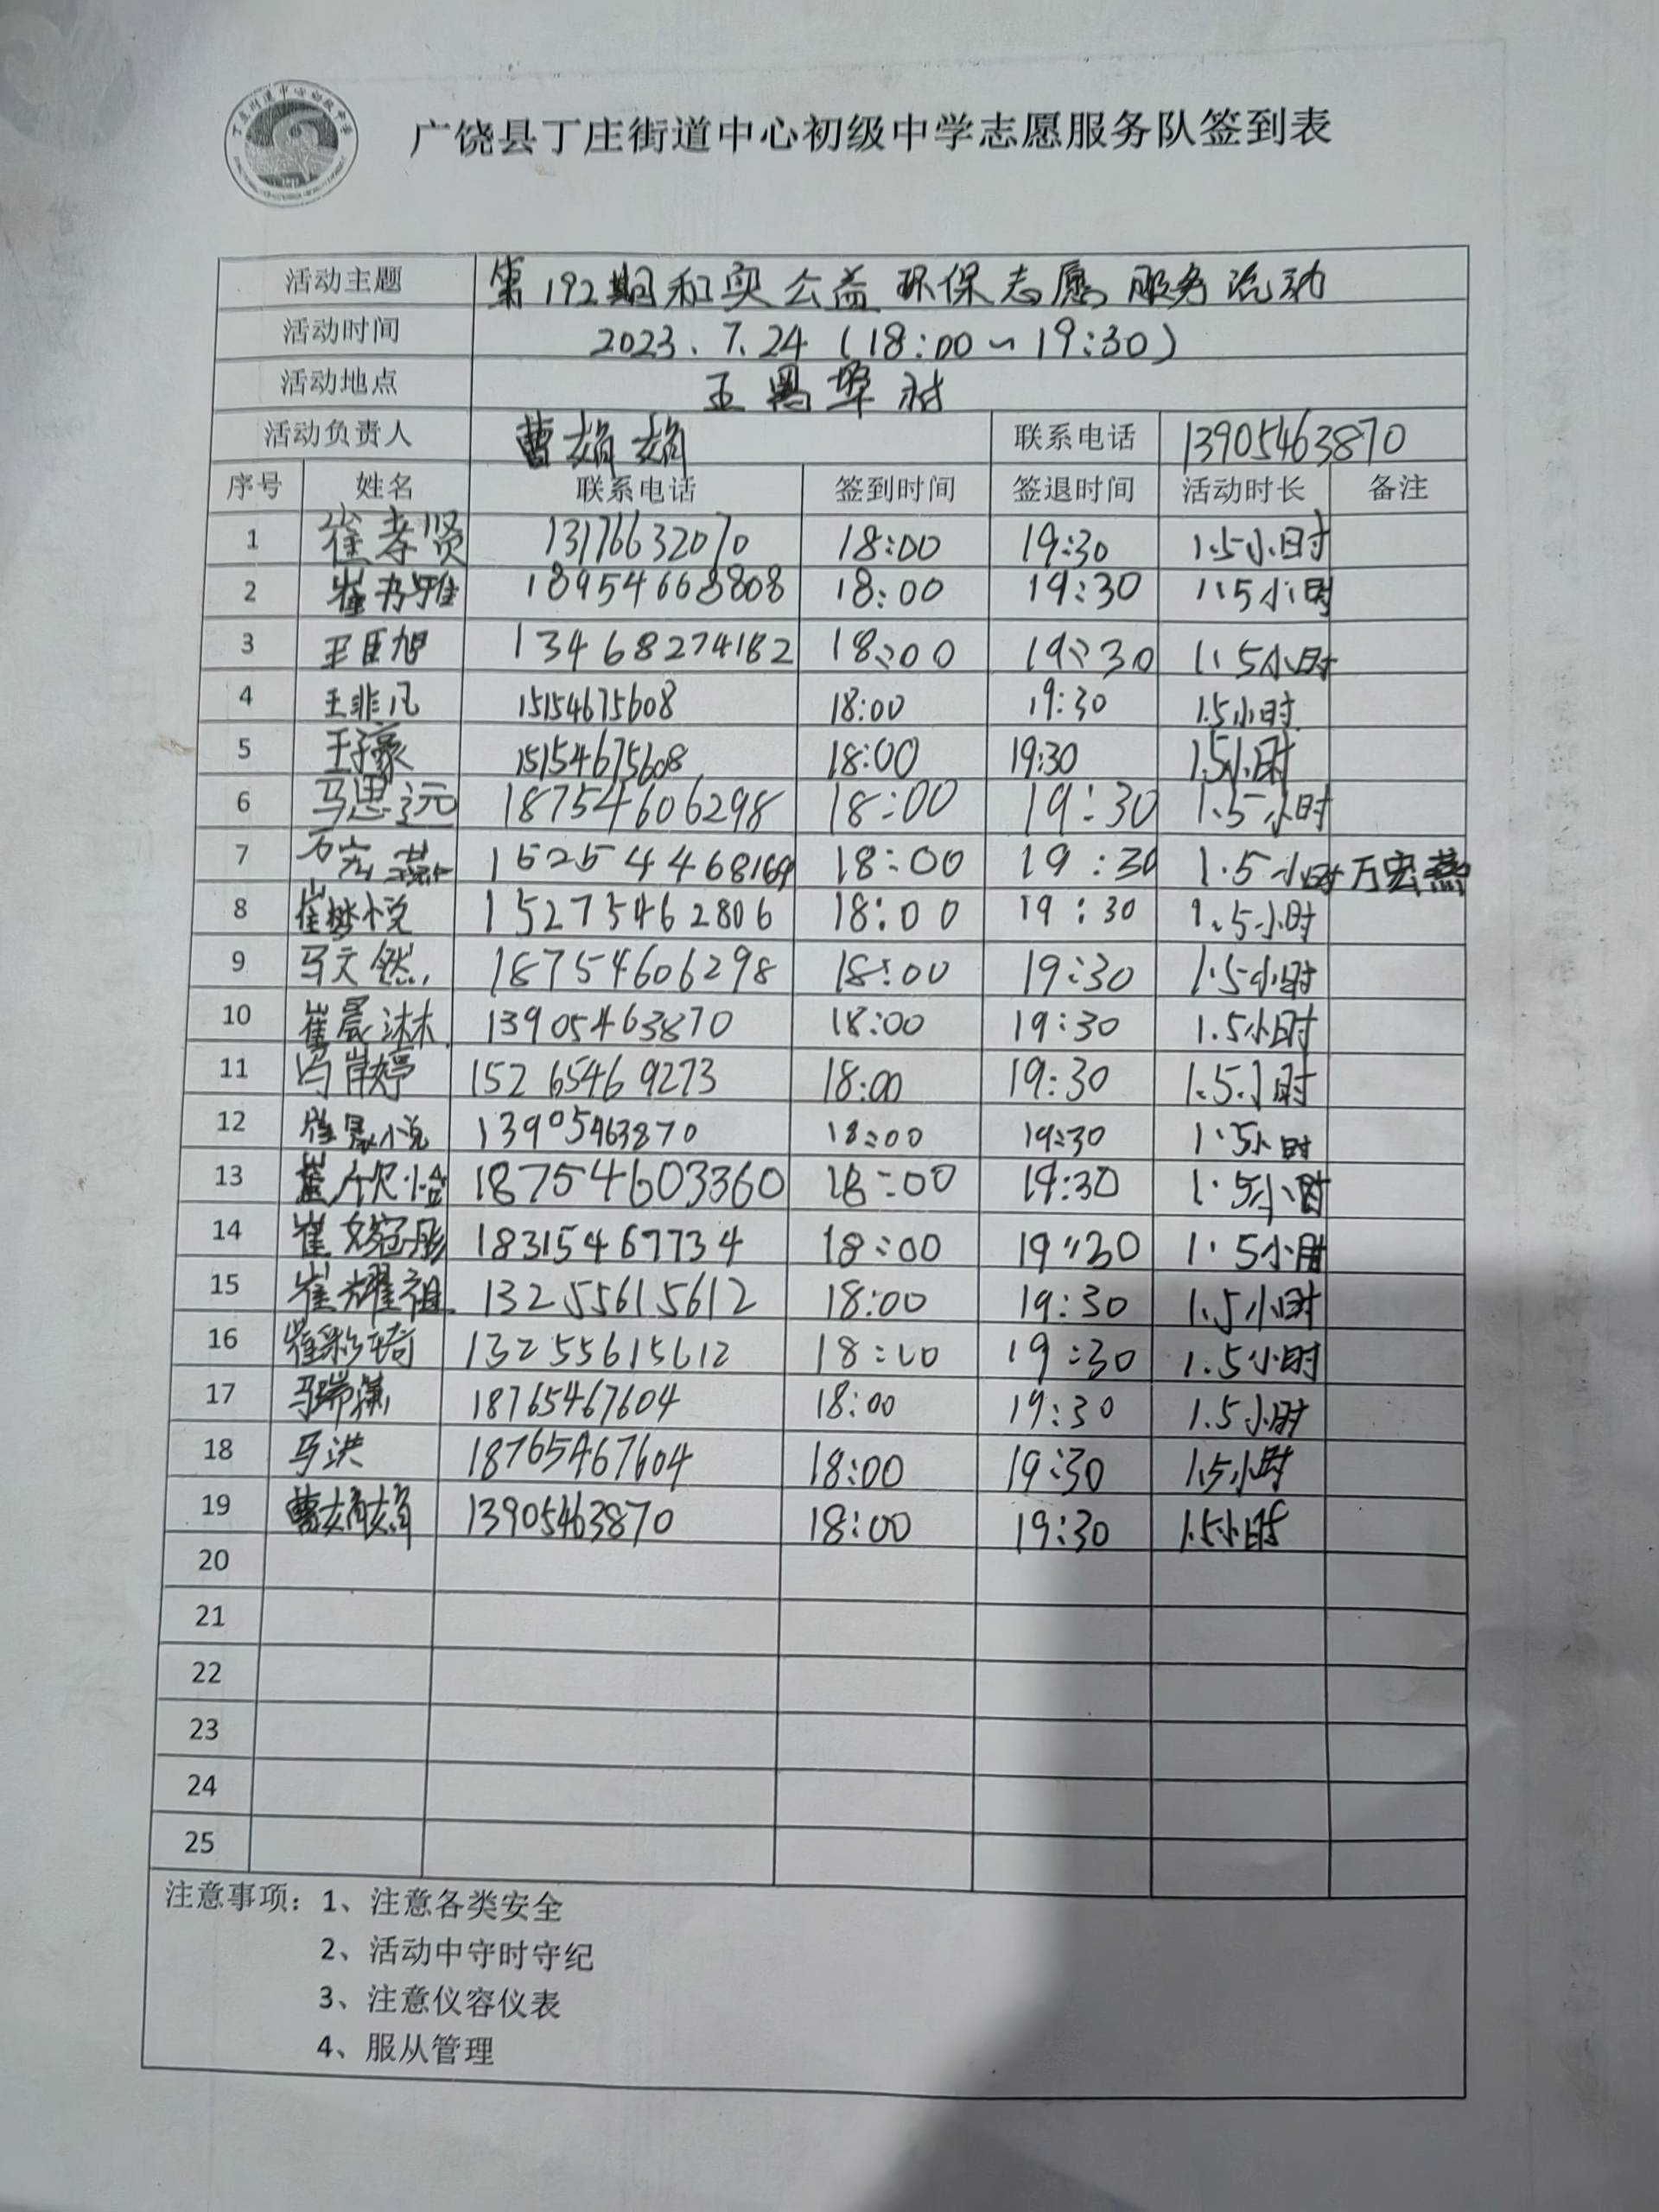 广饶县丁庄街道中心初级中学志愿服务队签到表
活动主题 第192期和实公益环保志愿服务活动
活动时间 2023.7.24(18:00~19:30)
活动地点 王署埠村
活动负责人 曹娟娟 联系电话 13905463870
序号 姓名 联系电话 签到时间 签退时间 活动时长 备注
1 崔孝贤 13176632070 18:00 19:30 1.5小时
2 崔书雅 18954668808 18:00 19:30 1.5小时
3 王臣旭 13468274182 18:00 19:30 1.5小时
4 王非凡 15154675608 18:00 19:30 1.5小时
5 王子豪 15154675608 18:00 19:30 1.5小时
6 马思远 18754606298 18:00 19:30 1.5小时
7 万宏燕 18:00 19:30 1.5小时 万宏燕
8 崔梦悦 15275462806 18:00 19:30 1.5小时
9 马文然 18754606298 18:00 19:30 1.5小时
10 崔晨沐 13905463870 18:00 19:30 1.5小时
11 冯肖婷 15265469273 18:00 19:30 1.5小时
12 崔晨悦 13905463870 18:00 19:30 1.5小时
13 崔欣怡 18754603360 18:00 19:30 1.5小时
14 崔 18315467734 18:00 19:30 1.5小时
15 崔耀祖 13255615612 18:00 19:30 1.5小时
16 崔彩琦 13255615612 18:00 19:30 1.5小时
17 马瑞 18765467604 18:00 19:30 1.5小时
18 马洪 18765467604 18:00 19:30 1.5小时
19 曹娟娟 13905463870 18:00 19:30 1.5小时
20
21
22
23
24
25
注意事项：1、注意各类安全
2、活动中守时守纪
3、注意仪容仪表
4、服从管理